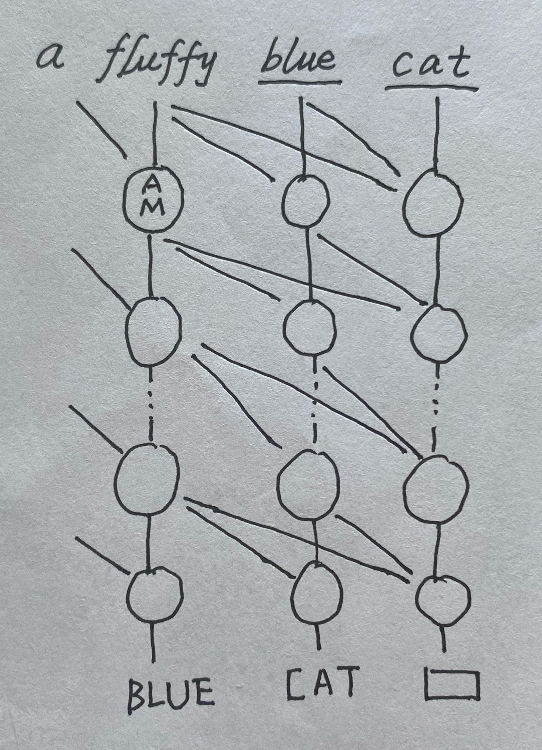 a fluffy blue cat
A
M
BLUE CAT